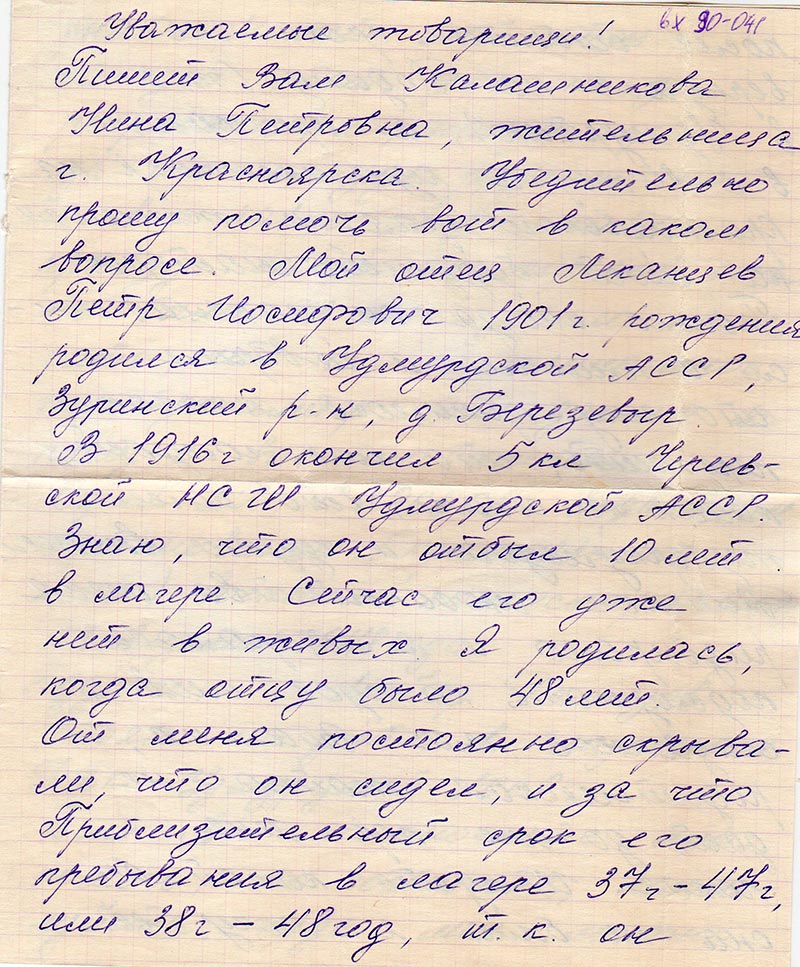 вх 90-041
Уважаемые товарищи!
Пишет Вам Калашникова
Нина Петровна, жительница
г. Красноярска. Убедительно
прошу помочь вот в каком
вопросе. Мой отец Леканцев
Петр Иосифович 1901г. рождения
родился в Удмурдской АССР,
Зуринский р-н, д. Березевыр.
В 1916г окончил 5 кл
ской НСШ Удмурдской АССР.
Знаю, что он отбыл 10 лет
в лагере. Сейчас его уже
нет в живых. Я родилась,
когда отцу было 48 лет.
От меня постоянно скрыва-
ли, что он сидел, и за что
Приблизительный срок его
пребывания в лагере 37г-47г,
или 38г-48 год, т.к. он